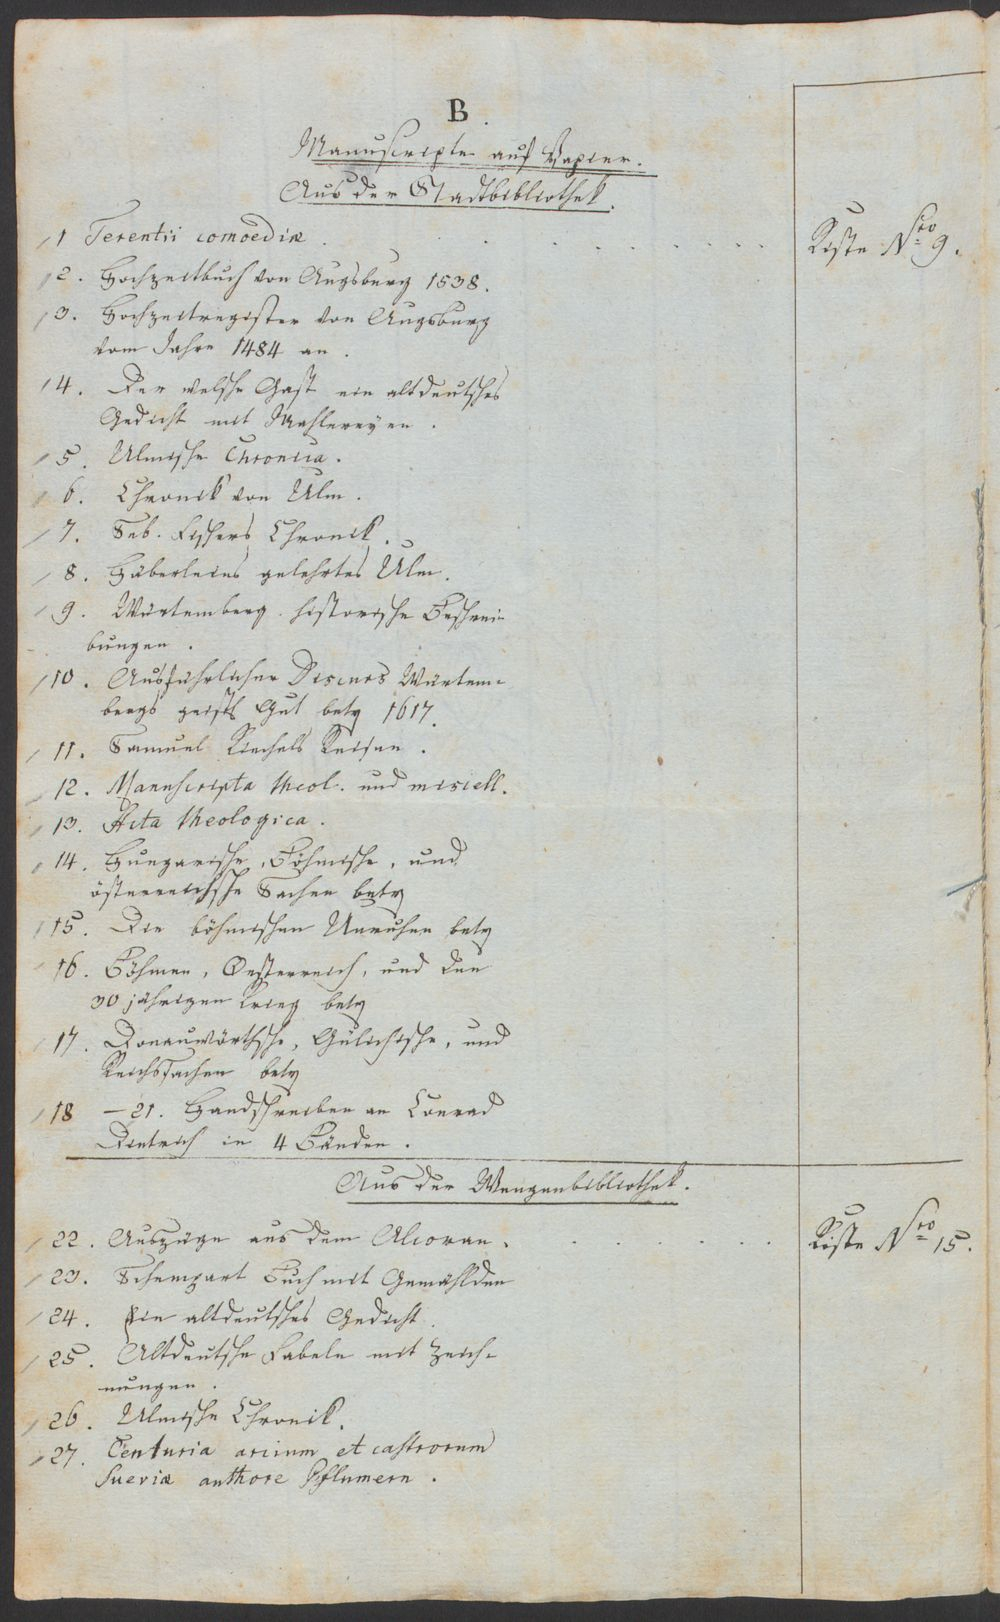 B.
Manuscripte auf Papier.
Aus der Stadtbibliothek.
1 Terentii comoediæ . . . . . . . . . Kiste Nro 9.
2. Hochzeitbuch von Augsburg 1538.
3. Hochzeitregister von Augsburg
vom Jahre 1484 an.
4. Der welsche Gast ein altdeutsches
Gedicht mit Mahlereyen.
5. Ulmische Chronica.
6. Chronik von Ulm.
7. Seb. Fischers Chronik.
8. Häberleins gelehrtes Ulm.
9. Würtemberg. historische Beschrei-
bungen.
10. Ausführlicher Discurs Würtem-
bergs geistl Gut betr 1617.
11. Samuel Kiechels Reisen.
12. Manuscripta theol. und miscell.
13. Acta theologica.
14. Hungarische, Böhmische, und
österreichsche Sachen betr
15. Die böhmischen Unruhen betr
16. Böhmen, Oesterreich, und den
30 jährigen Krieg betr
17. Donauwörthsche, Gülichische, und
Reichssachen betr
18 – 21. Handschreiben an Conrad
Dietrich in 4 Bänden.
Aus der Wengenbibliothek.
22. Auszüge aus dem Alcoran. . . . . . . Kiste Nro 15.
23. Schempart Buch mit Gemählden
24. Ein altdeutsches Gedicht.
25. Altdeutsche Fabeln mit Zeich-
nungen.
26. Ulmische Chronik.
27. Centuria arcium et castrorum
Sueviæ authore Pflumern.